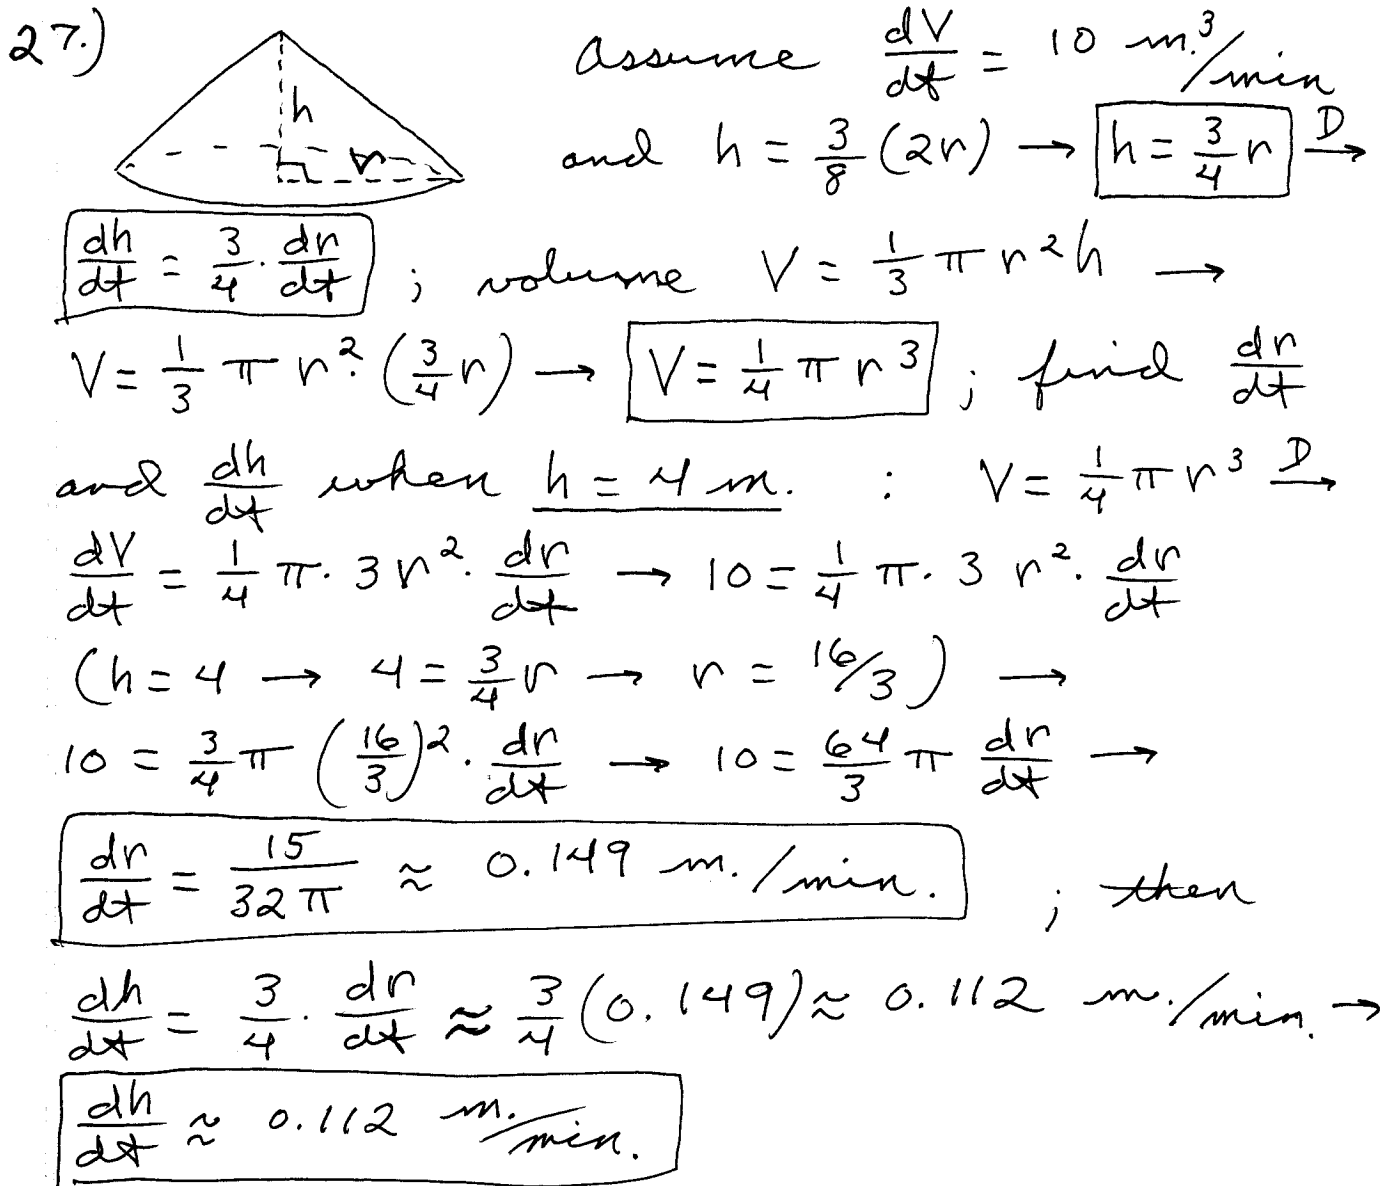 27.) Assume dV/dt = 10 m.³/min
h
r
and h = 3/8 (2r) → h = 3/4 r D→
dh/dt = 3/4 · dr/dt ; volume V = 1/3 π r² h →
V = 1/3 π r² · (3/4 r) → V = 1/4 π r³ ; find dr/dt
and dh/dt when h = 4 m. : V = 1/4 π r³ D→
dV/dt = 1/4 π · 3 r² · dr/dt → 10 = 1/4 π · 3 r² · dr/dt
(h = 4 → 4 = 3/4 r → r = 16/3) →
10 = 3/4 π (16/3)² · dr/dt → 10 = 64/3 π dr/dt →
dr/dt = 15/32π ≈ 0.149 m./min. ; then
dh/dt = 3/4 · dr/dt ≈ 3/4 (0.149) ≈ 0.112 m./min. →
dh/dt ≈ 0.112 m./min.